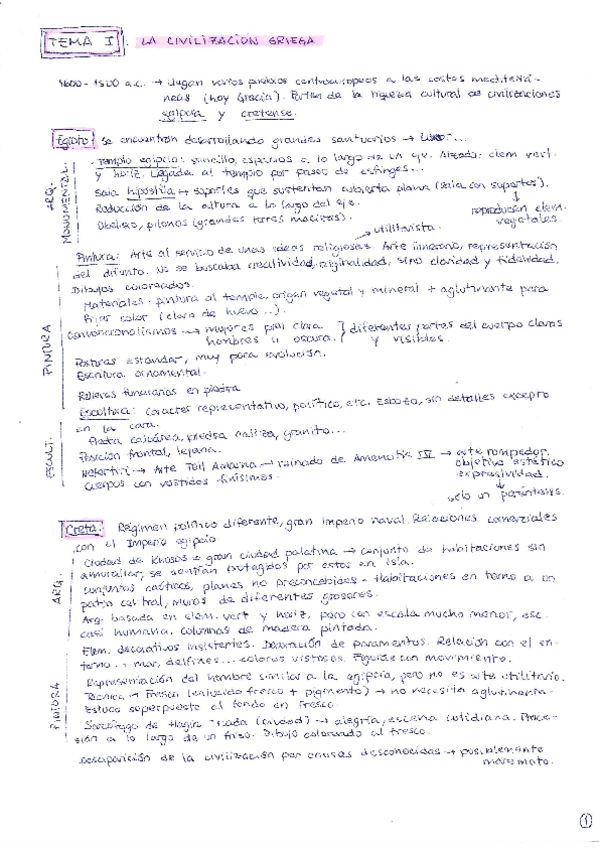 TEMA I : LA CIVILIZACION GRIEGA
1600 - 1500 a.c. → llegan varios pueblos centroeuropeos a las costas mediterrá-
neas (hoy Grecia). Parten de la riqueza cultural de civilizaciones
egipcia y cretense.
Egipto: Se encuentran desarrollando grandes santuarios → Luxor...
ARQ. MONUMENTAL.
· Templo egipcio: sencillo, espacios a lo largo de un eje. Alzado: elem vert.
y horiz. Llegada al templo por paseo de esfinges...
Sala hipóstila → soportes que sustentan cubierta plana (sala con soportes).
Reducción de la altura a lo largo del eje.
reproducían elem. vegetales.
Obelisco, pilonos (grandes torres macizas).
utilitarista.
PINTURA
Pintura: Arte al servicio de unas ideas religiosas. Arte funerario, representación
del difunto. No se buscaba creatividad, originalidad, sino claridad y fidelidad.
Dibujos coloreados.
Materiales: pintura al temple, origen vegetal y mineral + aglutinante para
fijar color (clara de huevo...).
Convencionalismos → mujeres piel clara
hombres " oscura. } diferentes partes del cuerpo claras y visibles.
Posturas estandar, muy poca evolución.
Escritura ornamental.
Relieves funerarios en piedra
ESCULT.
Escultura: Caracter representativo, político, etc. Esbozo, sin detalles excepto
en la cara.
Piedra calcárea, piedra caliza, granito...
Posición frontal, lejana.
Nefertiti → Arte Tell Amarna → reinado de Amenofis IV → arte rompedor,
objetivo estético
expresividad.
Cuerpos con vestidos finísimos.
solo un paréntesis.
Creta: Régimen político diferente, gran imperio naval. Relaciones comerciales
con el Imperio egipcio
ARQ.
Ciudad de Knosos → gran ciudad palatina → conjunto de habitaciones sin
amurallar, se sentían protegidos por estar en isla.
Conjuntos caóticos, planes no preconcebidos - Habitaciones en torno a un
patio central, muros de diferentes grosores.
Arq. basada en elem. vert y horiz, pero con escala mucho menor, esc.
casi humana. columnas de madera pintada.
Elem. decorativos insistentes. Decoración de paramentos. Relación con el en-
torno → mar, delfines... colores vistosos. Figuras con movimiento.
PINTURA
Representación del hombre similar a la egipcia, pero no es arte utilitario.
Técnica → Fresco (enlucido fresco + pigmento) → no necesita aglutinante.
Estuco superpuesto al fondo en fresco.
Sarcófago de Hagia Triada (ataúd) → alegría, escena cotidiana. Proce-
sión a lo largo de un friso. Dibujo coloreado al fresco.
Desaparición de la civilización por causas desconocidas → posiblemente
maremoto.
1